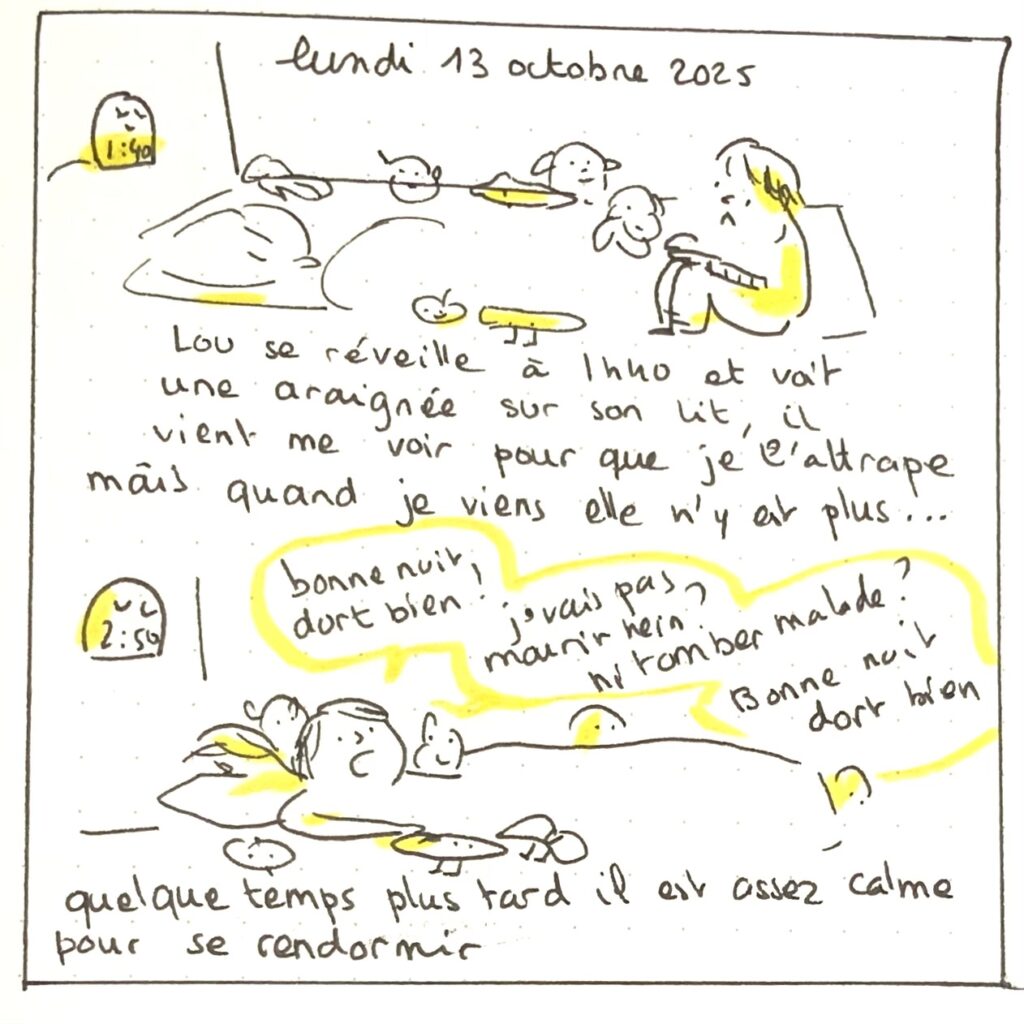 lundi 13 octobre 2025
1:40
Lou se réveille à 1h40 et voit
une araignée sur son lit, il
vient me voir pour que je l'attrape
mais quand je viens elle n'y est plus...
2:50
bonne nuit,
dort bien!
j'vais pas
mourir hein?
ni tomber malade?
Bonne nuit
dort bien
quelque temps plus tard il est assez calme
pour se rendormir